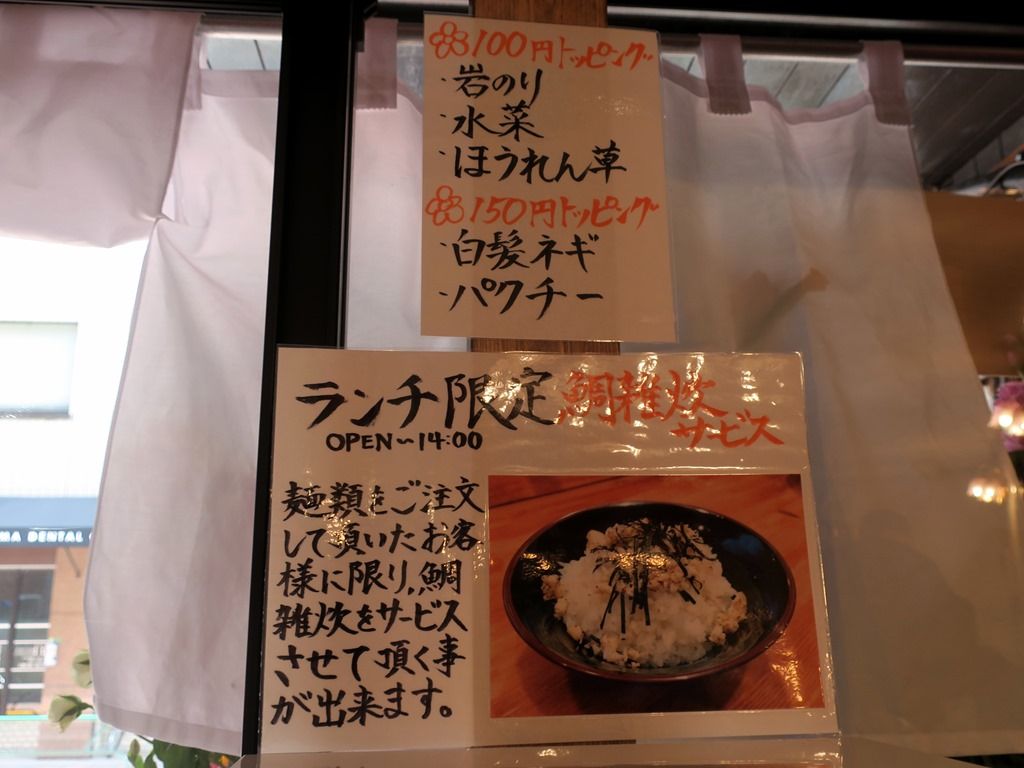 100円トッピング
・岩のり
・水菜
・ほうれん草
150円トッピング
・白髪ネギ
・パクチー
ランチ限定 鯛雑炊
サービス
OPEN〜14:00
麺類をご注文
して頂いたお客
様に限り、鯛
雑炊をサービス
させて頂く事
が出来ます。
MA DENTAL